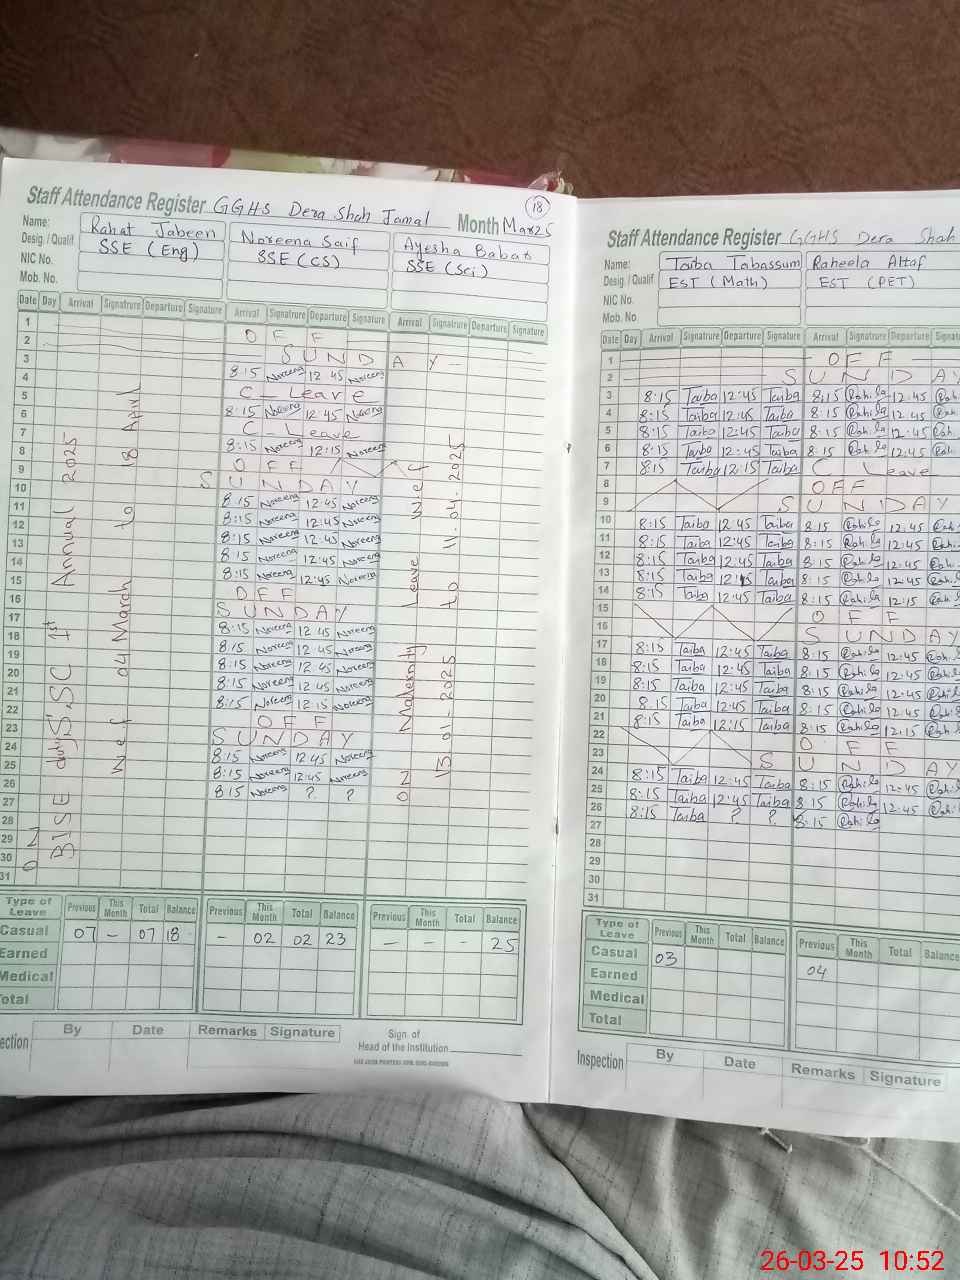 Staff Attendance Register GGHS Dera Shah Jamal Month Mar25
18
Name: Rahat Jabeen Noreena Saif Ayesha Babar
Desig. / Qualif SSE (Eng) SSE (CS) SSE (Sci)
NIC No.
Mob. No.
Date Day Arrival Signatrure Departure Signature Arrival Signatrure Departure Signature Arrival Signatrure Departure Signature
1 OFF
2 SUNDAY
3 8:15 Noreena 12 45 Noreena
4 C - Leave
5 8:15 Noreena 12 45 Noreena
6 C - Leave
7 8:15 Noreena 12:15 Noreena
8 OFF
9 SUNDAY
10 8:15 Noreena 12:45 Noreena
11 8:15 Noreena 12:45 Noreena
12 8:15 Noreena 12:45 Noreena
13 8:15 Noreena 12:45 Noreena
14 8:15 Noreena 12:45 Noreena
15 OFF
16 SUNDAY
17 8:15 Noreena 12 45 Noreena
18 8:15 Noreena 12 45 Noreena
19 8:15 Noreena 12:45 Noreena
20 8:15 Noreena 12:45 Noreena
21 8:15 Noreena 12:15 Noreena
22 OFF
23 SUNDAY
24 8:15 Noreena 12:45 Noreena
25 8:15 Noreena 12:45 Noreena
26 8:15 Noreena ? ?
27
28
29
30
31
ON BISE duty SSC 1st Annual 2025
w.e.f 04 March to 18 April
ON Maternity Leave w.e.f
13.01.2025 to 11.04.2025
Type of Leave Previous This Month Total Balance Previous This Month Total Balance Previous This Month Total Balance
Casual 07 - 07 18 - 02 02 23 - - - 25
Earned
Medical
Total
By Date Remarks Signature
Sign. of
Head of the Institution
Staff Attendance Register GGHS Dera Shah
Name: Taiba Tabassum Raheela Altaf
Desig. / Qualif EST (Math) EST (PET)
NIC No.
Mob. No.
Date Day Arrival Signatrure Departure Signature Arrival Signatrure Departure
1 OFF
2 SUNDAY
3 8:15 Taiba 12:45 Taiba 8:15 Rahila 12:45
4 8:15 Taiba 12:45 Taiba 8:15 Rahila 12:45
5 8:15 Taiba 12:45 Taiba 8:15 Rahila 12:45
6 8:15 Taiba 12:45 Taiba 8:15 Rahila 12:45
7 8:15 Taiba 12:15 Taiba C Leave
8 OFF
9 SUNDAY
10 8:15 Taiba 12:45 Taiba 8:15 Rahila 12:45
11 8:15 Taiba 12:45 Taiba 8:15 Rahila 12:45
12 8:15 Taiba 12:45 Taiba 8:15 Rahila 12:45
13 8:15 Taiba Taiba 8:15 Rahila 12:45
14 8:15 Taiba 12:45 Taiba 8:15 Rahila 12:15
15 OFF
16 SUNDAY
17 8:15 Taiba 12:45 Taiba 8:15 Rahila 12:45
18 8:15 Taiba 12:45 Taiba 8:15 Rahila 12:45
19 8:15 Taiba 12:45 Taiba 8:15 Rahila 12:45
20 8:15 Taiba 12:45 Taiba 8:15 Rahila 12:45
21 8:15 Taiba 12:15 Taiba 8:15 Rahila 12:15
22 OFF
23 SUNDAY
24 8:15 Taiba 12:45 Taiba 8:15 Rahila 12:45
25 8:15 Taiba 12:45 Taiba 8:15 Rahila 12:45
26 8:15 Taiba ? ? 8:15 Rahila
27
28
29
30
31
Type of Leave Previous This Month Total Balance Previous This Month Total Balance
Casual 03 04
Earned
Medical
Total
Inspection By Date Remarks Signature
26-03-25 10:52